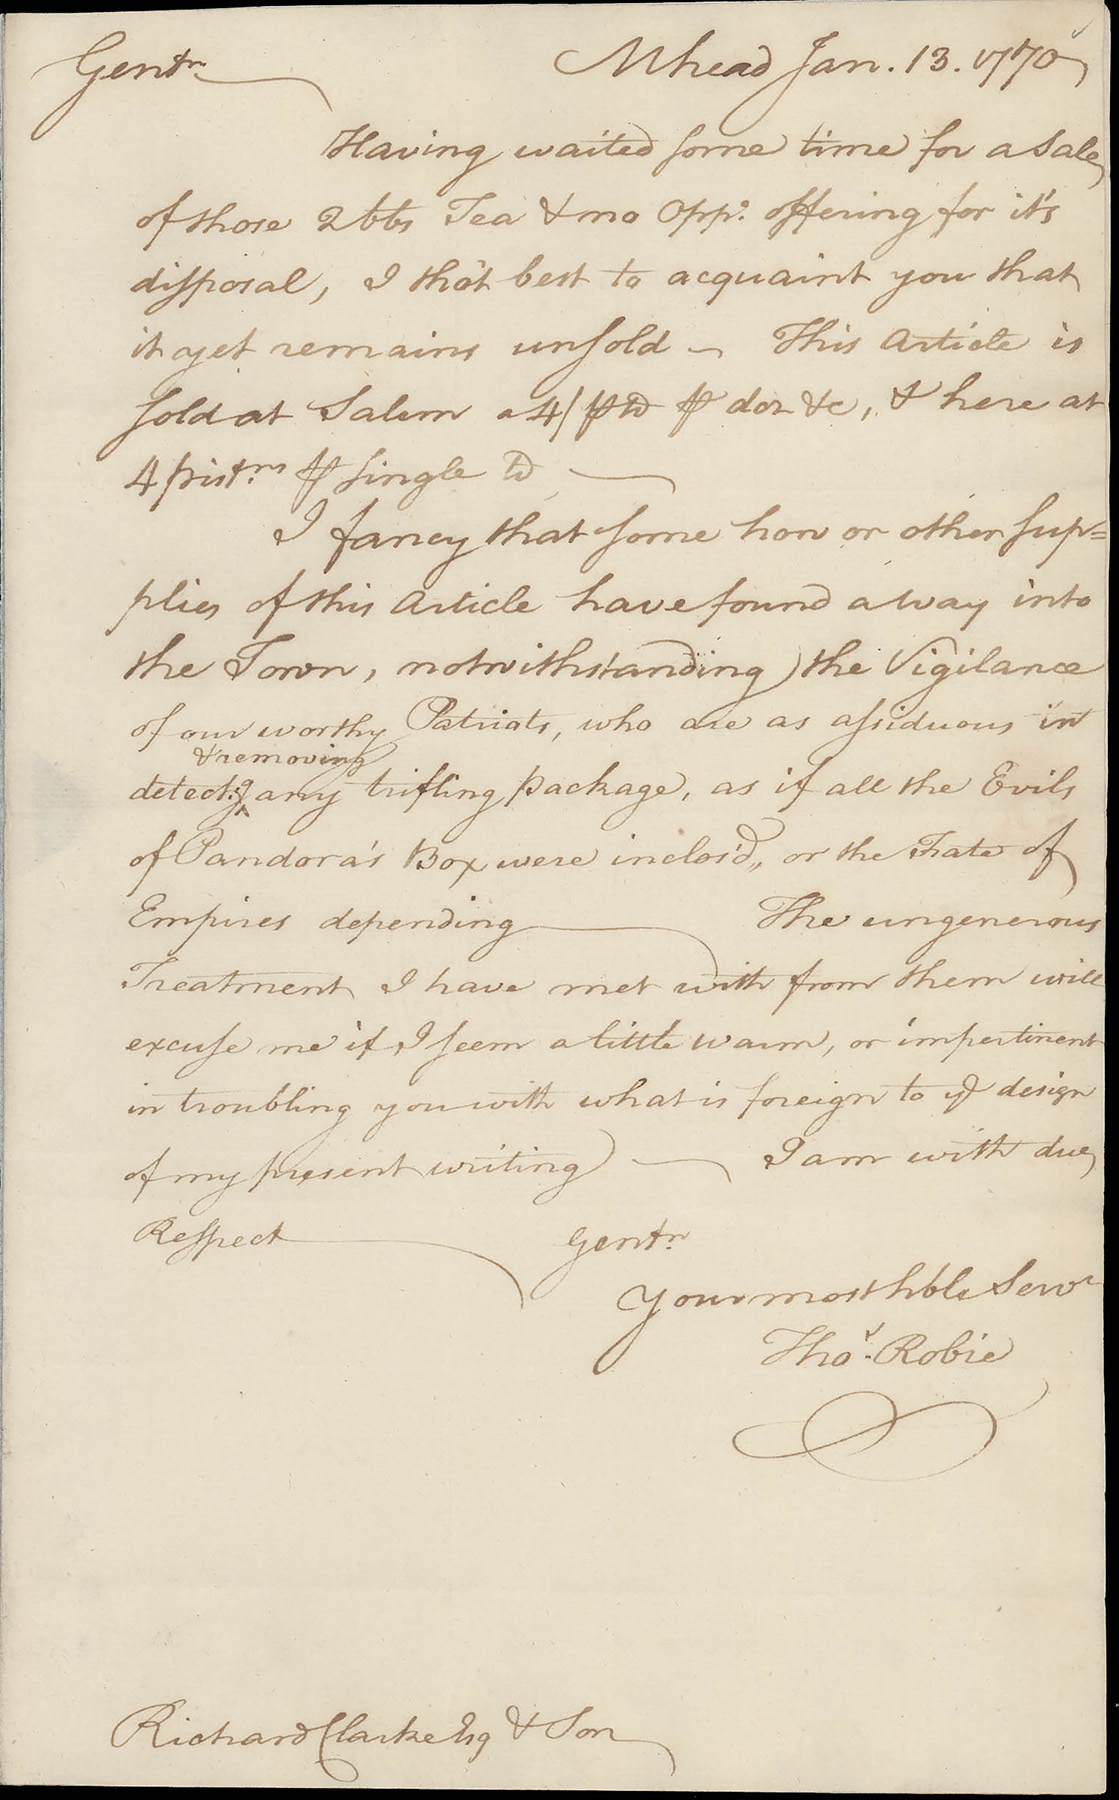 Gentn
Mhead Jan. 13. 1770
Having waited some time for a Sale
of those 2 bbs Tea & no Oppo. offering for it's
disposal, I tho't best to acquaint you that
it yet remains unsold — This Article is
sold at Salem a 4/ ⅌ ℔ ⅌ doz &c, & here at
4 pistrns ⅌ single ℔ —
I fancy that some how or other sup=
plies of this Article have found a way into
the Town, notwithstanding the Vigilance
of our worthy Patriots, who are as assiduous in
& removing
detectg ‸ any trifling package, as if all the Evils
of Pandora's Box were inclos'd, or the Fate of
Empires depending — The ungenerous
Treatment I have met with from them will
excuse me if I seem a little warm, or impertinent
in troubling you with what is foreign to ye design
of my present writing — I am with due
Respect Gentn
Your most hble Servt
Thos. Robie
Richard Clarke Esq & Son